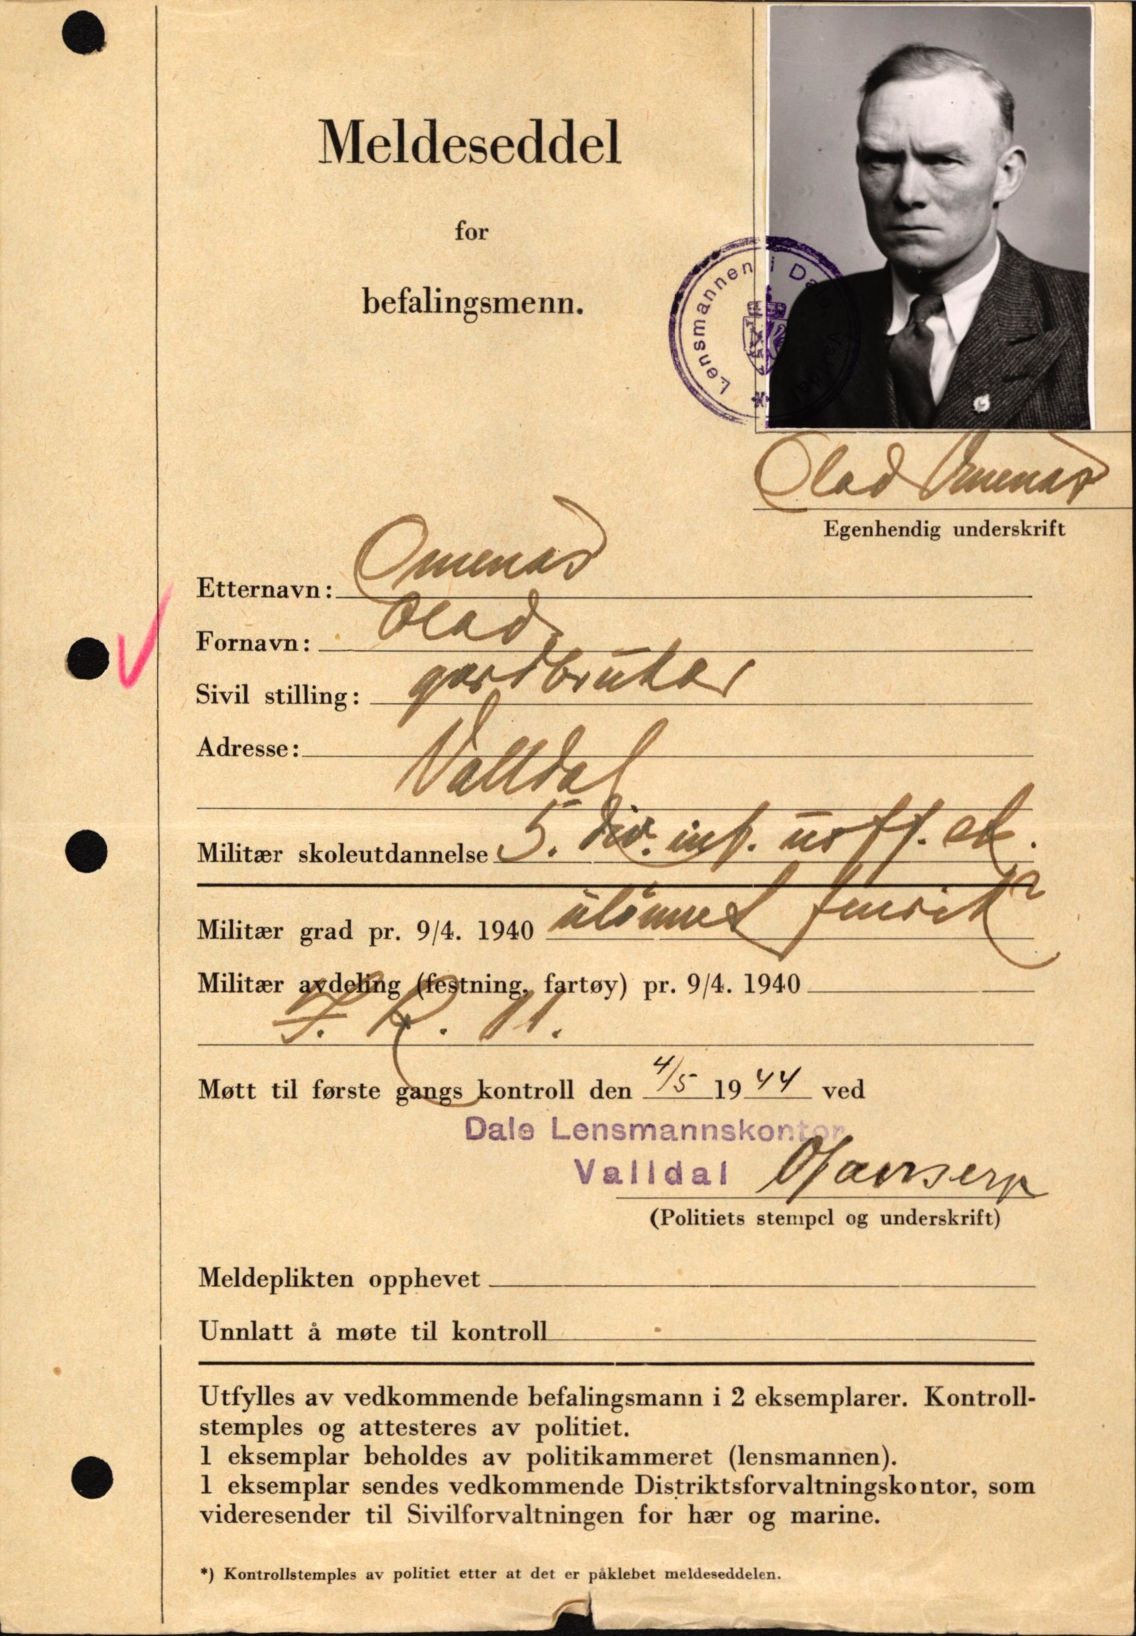 Meldeseddel
for
befalingsmenn.
Lensmannen i Dale Valldal
Olav Omenås
Egenhendig underskrift
Etternavn: Omenås
Fornavn: Olav
Sivil stilling: gardbrukar
Adresse: Valldal
Militær skoleutdannelse 5. div. inf. u.off. sk.
Militær grad pr. 9/4. 1940 ulønnet fenrik
Militær avdeling (festning, fartøy) pr. 9/4. 1940
I. R. 11.
Møtt til første gangs kontroll den 4/5 1944 ved
Dale Lensmannskontor
Valldal
(Politiets stempel og underskrift)
Meldeplikten opphevet
Unnlatt å møte til kontroll
Utfylles av vedkommende befalingsmann i 2 eksemplarer. Kontroll-
stemples og attesteres av politiet.
1 eksemplar beholdes av politikammeret (lensmannen).
1 eksemplar sendes vedkommende Distriktsforvaltningskontor, som
videresender til Sivilforvaltningen for hær og marine.
*) Kontrollstemples av politiet etter at det er påklebet meldeseddelen.